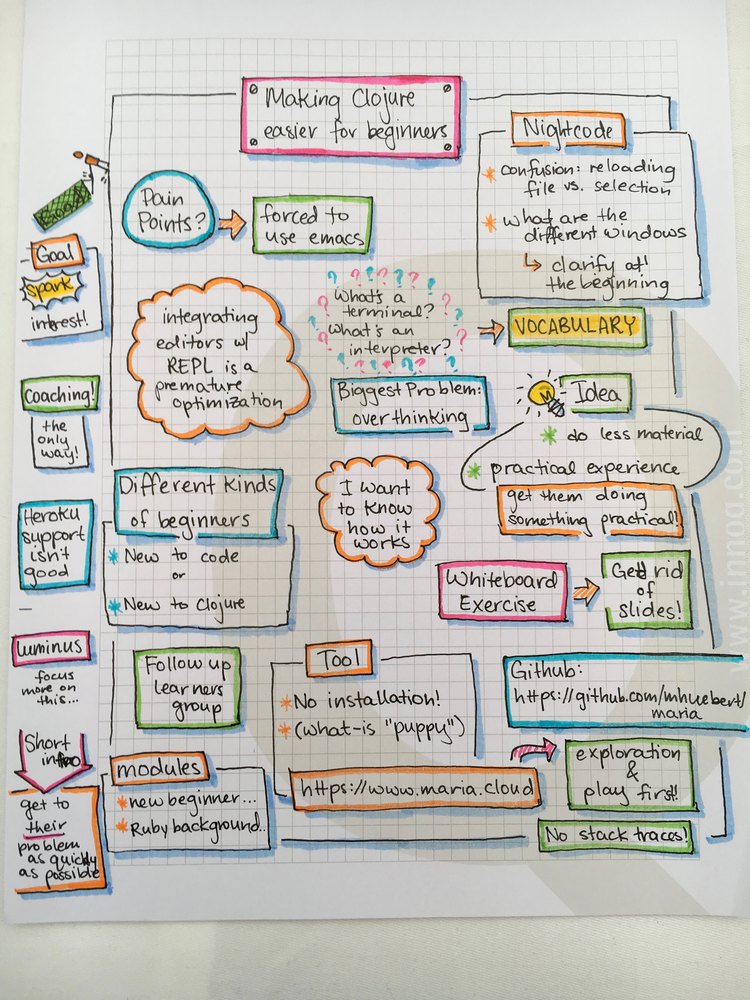 Making Clojure
easier for beginners
Nightcode
* confusion: reloading
file vs. selection
* what are the
different windows
↳ clarify at
the beginning
Pain
Points?
forced to
use emacs
Goal
spark
interest!
integrating
editors w/
REPL is a
premature
optimization
What's a
terminal?
What's an
interpreter?
VOCABULARY
Coaching!
the
only
way!
Biggest Problem:
overthinking
Idea
* do less material
* practical experience
get them doing
something practical!
Different kinds
of beginners
* New to code
or
* New to Clojure
I want
to know
how it
works
Heroku
support
isn't
good
Whiteboard
Exercise
Get rid
of
slides!
Luminus
focus
more on
this...
Follow up
learners
group
Tool
* No installation!
* (what-is "puppy")
https://www.maria.cloud
Github:
https://github.com/mhuebert/
maria
exploration
&
play first!
No stack traces!
Short
intro
get to
their
problem
as quickly
as possible
modules
* new beginner...
* Ruby background..
www.innoq.com